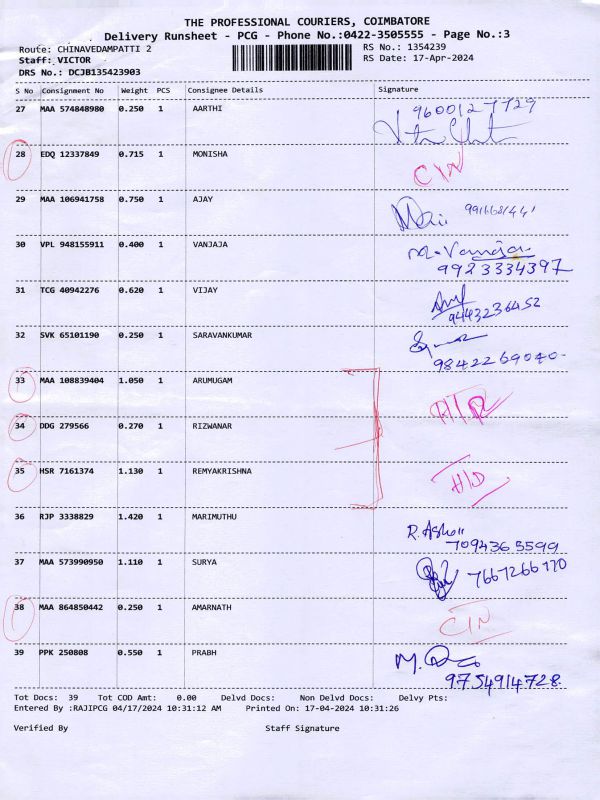 THE PROFESSIONAL COURIERS, COIMBATORE
Delivery Runsheet - PCG - Phone No.:0422-3505555 - Page No.:3
Route: CHINAVEDAMPATTI 2 RS No.: 1354239
Staff: VICTOR RS Date: 17-Apr-2024
DRS No.: DCJB135423903
S No Consignment No Weight PCS Consignee Details Signature
27 MAA 574848980 0.250 1 AARTHI 9600127729
28 EDQ 12337849 0.715 1 MONISHA CIN
29 MAA 106941758 0.750 1 AJAY
30 VPL 948155911 0.400 1 VANJAJA M.Vanaja
9923334397
31 TCG 40942276 0.620 1 VIJAY
9443236452
32 SVK 65101190 0.250 1 SARAVANKUMAR
9842269040
33 MAA 108839404 1.050 1 ARUMUGAM
34 DDG 279566 0.270 1 RIZWANAR
35 HSR 7161374 1.130 1 REMYAKRISHNA H/D
36 RJP 3338829 1.420 1 MARIMUTHU R. Ashok
7094363599
37 MAA 573990950 1.110 1 SURYA 7667266770
38 MAA 864850442 0.250 1 AMARNATH CIN
39 PPK 250808 0.550 1 PRABH
9754914728
Tot Docs: 39 Tot COD Amt: 0.00 Delvd Docs: Non Delvd Docs: Delvy Pts:
Entered By :RAJIPCG 04/17/2024 10:31:12 AM Printed On: 17-04-2024 10:31:26
Verified By Staff Signature